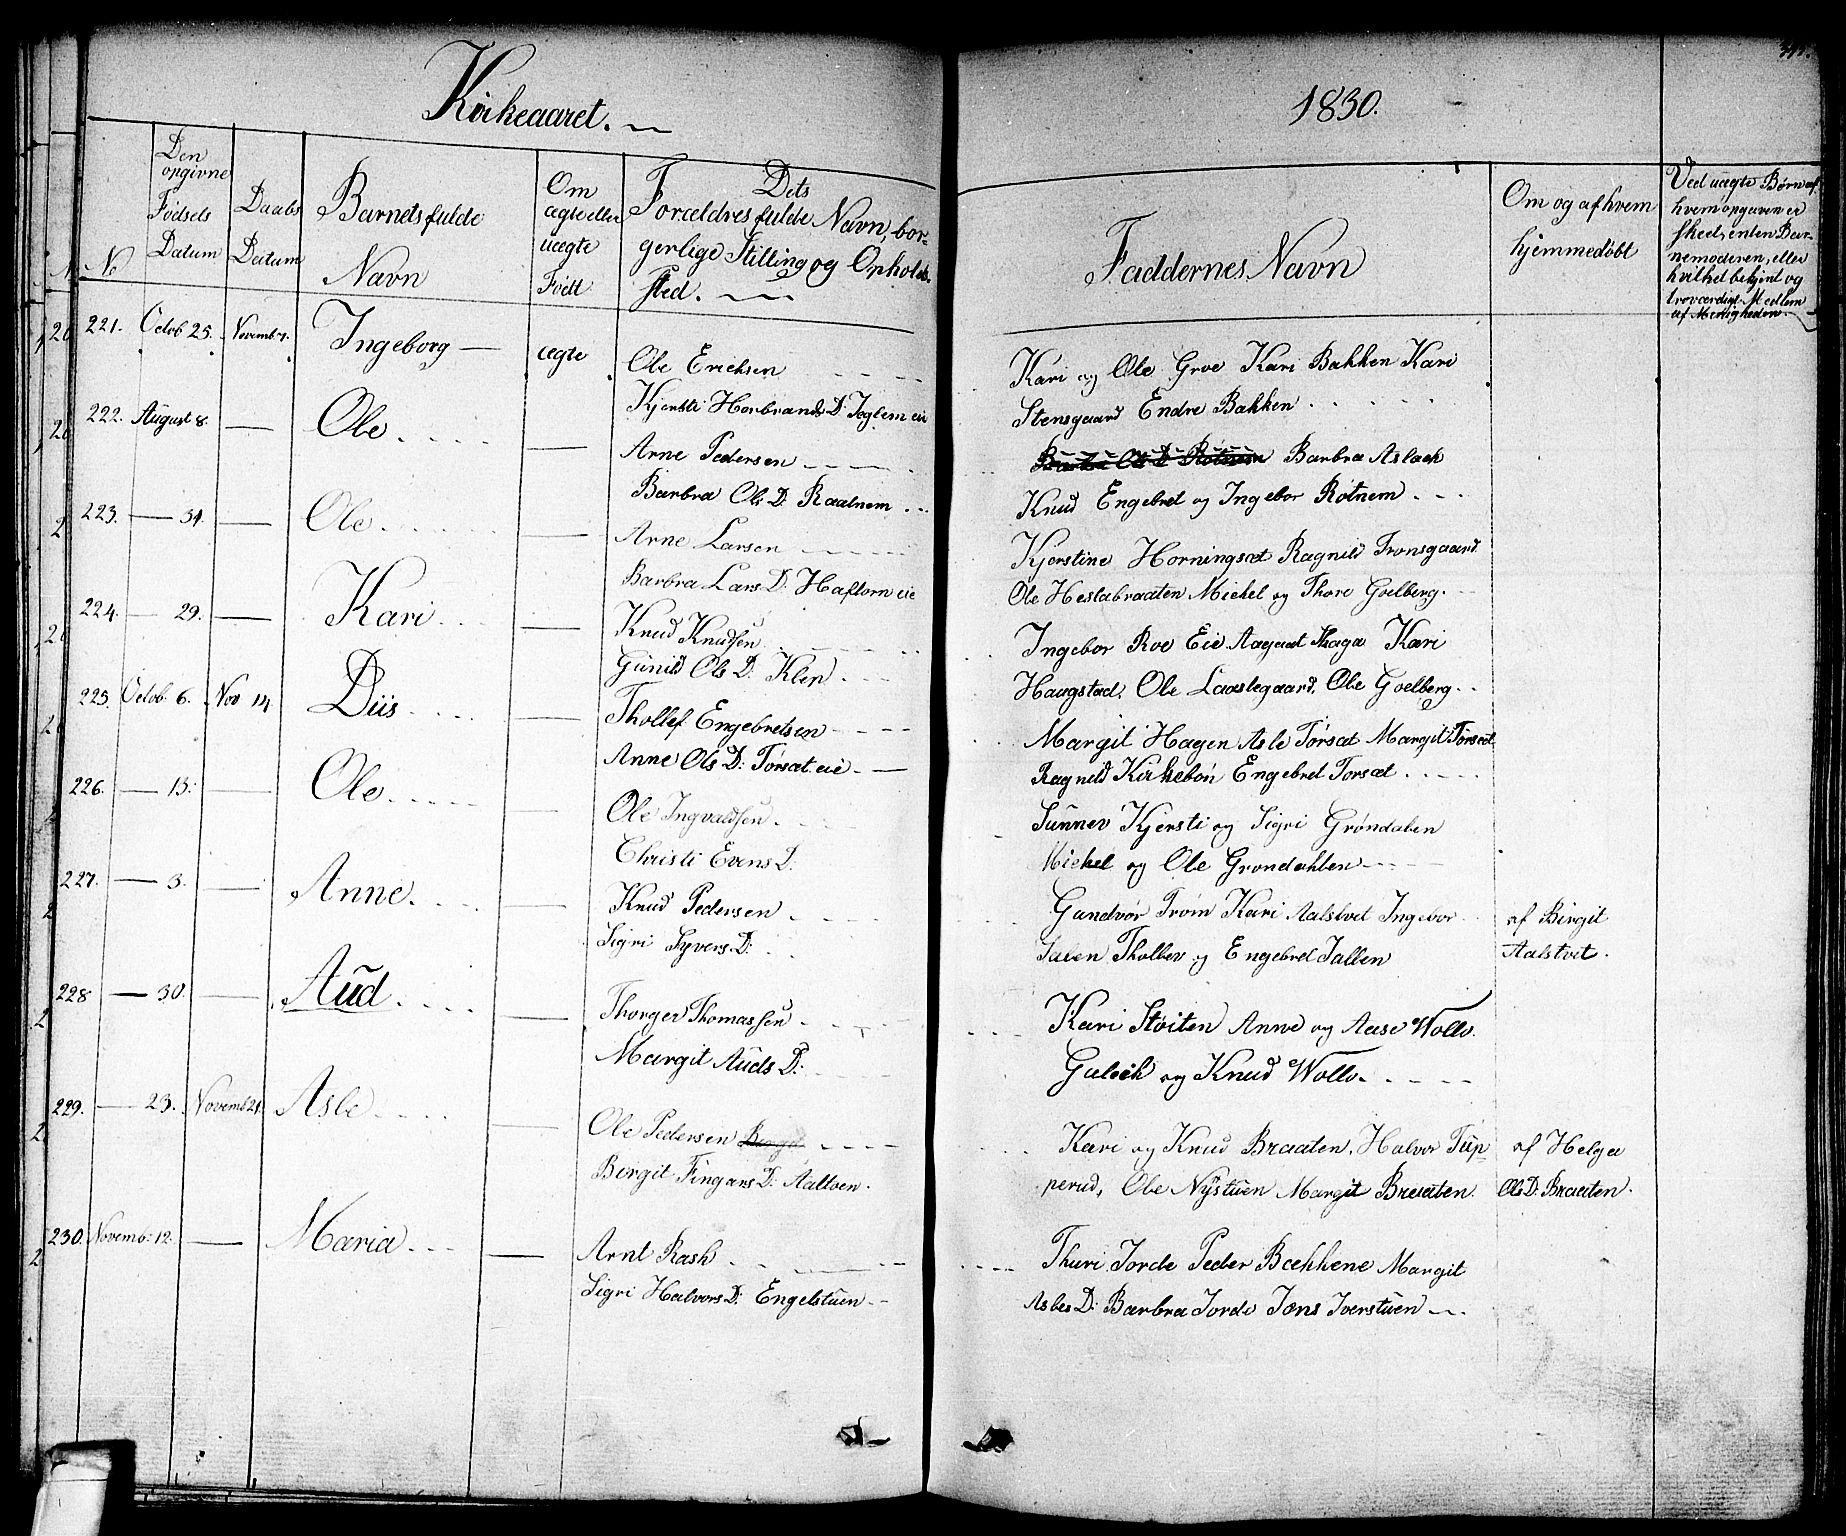 Kirkeaaret.
1830.
No
Den opgivne Fødsels Datum
Daabs Datum
Barnets fulde Navn
Om ægte eller uægte Født
Dets Forældres fulde Navn, borgerlige Stilling og Opholdssted.
Faddernes Navn
Om og af hvem hjemmedøbt
Ved uægte Børn af hvem opgaven er skeet, enten Barnemoderen, eller hvilket bekjent og troværdigt Medlem af Menigheden.
221. Octob 25. Novemb 7. Ingeborg — ægte
Ole Erichsen
Kjersti Horbrands D.
Kari og Ole Groe Kari Bakken Kari
Stensgaard Endre Bakken
222. August 8. — Ole. —
Arne Pedersen
Barbra Ols D: Raatnem
Barbra Aslack
Knud Engebret og Ingebor Rotnem
223. — 31. — Ole —
Arne Larsen
Barbra Lars D: Haftorn eie
Kjerstine Horningsæt Ragnild Tronsgaard
Ole Heslabraaten Michel og Thore Goelberg.
224. — 29. — Kari —
Knud Knudsen
Gunild Ols D: Klep.
Ingebor Roe Eie Aagaat Haga Kari
Haugstad, Ole Laaslegaard, Ole Goelberg
225. Octob 6. Nov 14 Diis —
Thollef Engebretsen
Anne Ols D: Torsæt eie
Margit Hagen Asle Torsæt Margit Torsæt
Ragnild Kirkebøn Engebret Torsæt
226. — 13. — Ole. —
Ole Ingvaldsen
Christi Evens D.
Sunnev Kjersti og Sigri Grøndalen
Michel og Ole Grondahlen
227. — 3. — Anne. —
Knud Pedersen
Sigri Syvers D:
Gundvor Trøm Kari Aalstvet Ingebor
Thollev og Engebret Jallen
af Birgit
Aalstvet.
228 — 30. — Aud. —
Thorger Thomassen
Margit Auds D:
Kari Støiten Anne og Aase Wollo.
Gulick og Knud Wollo.
229. — 23. Novemb 21. Asle —
Ole Pedersen
Birgit Fingars D: Aaltven.
Kari og Knud Braaten. Halvor Tup=
perud, Ole Nystuen Margit Braaten.
af Helga
Ols D: Braaten.
230. Novemb: 12. — Maria —
Arnt Rask
Sigri Halvors D: Engelstuen
Thuri Jorde Peder Bækkene Margit
Asles D: Barbra Jorde Jons Iverstuen